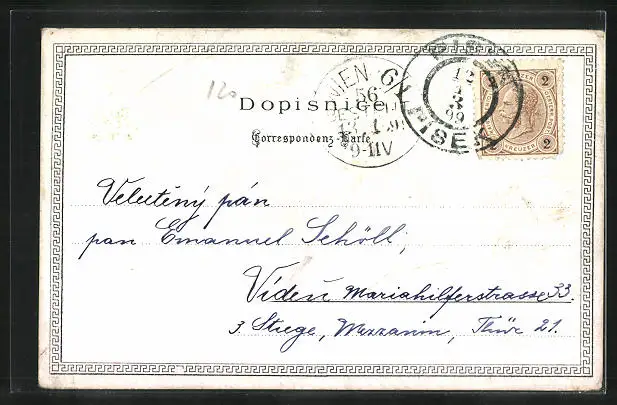 120
Dopisnice.
Correspondenz-Karte
WIEN 6/1
56
9-11V
PÍSEK
12
1
99
PISEK
2
KREUZER
2
Velectěný pán
pan Emanuel Schöll,
Vídeň Mariahilferstrasse 33.
3. Stiege, Mezzanin, Thür 21.